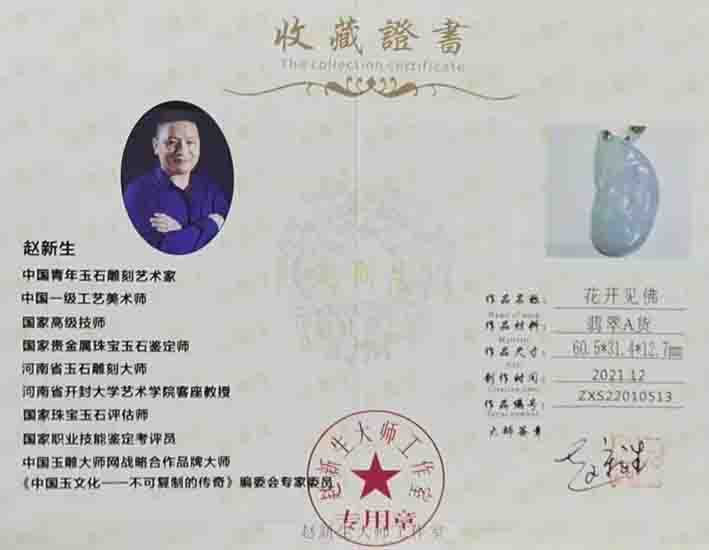 收藏證書
The collection certificate
赵新生
中国青年玉石雕刻艺术家
中国一级工艺美术师
国家高级技师
国家贵金属珠宝玉石鉴定师
河南省玉石雕刻大师
河南省开封大学艺术学院客座教授
国家珠宝玉石评估师
国家职业技能鉴定考评员
中国玉雕大师网战略合作品牌大师
《中国玉文化——不可复制的传奇》编委会专家委员
作品名称: 花开见佛
Name of work
作品材料: 翡翠A货
Material
作品尺寸: 60.5*31.4*12.7mm
制作时间: 2021.12
Creation time
作品编号: ZXS22010513
Serial number
大师签章
赵新生
赵新生大师工作室
专用章
赵新生大师工作室